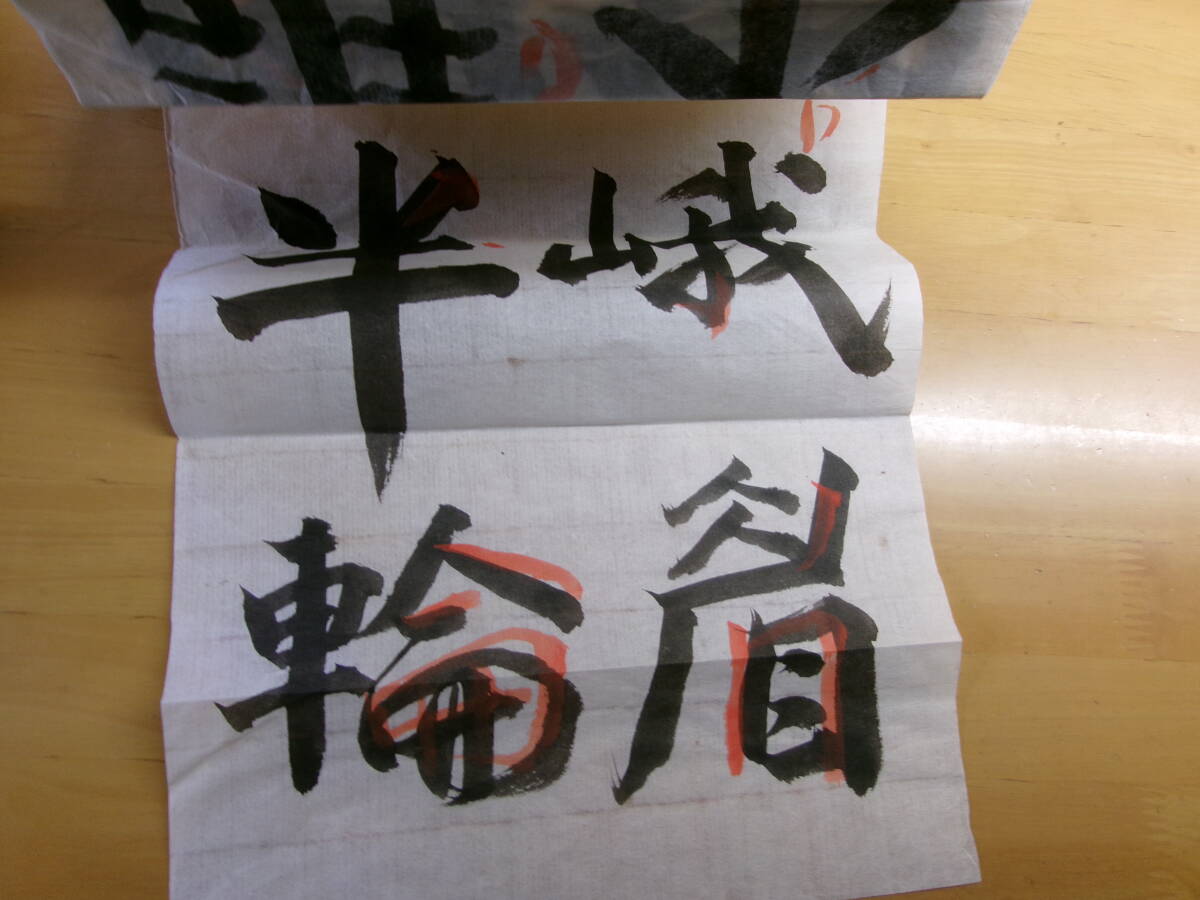 峨眉
半輪